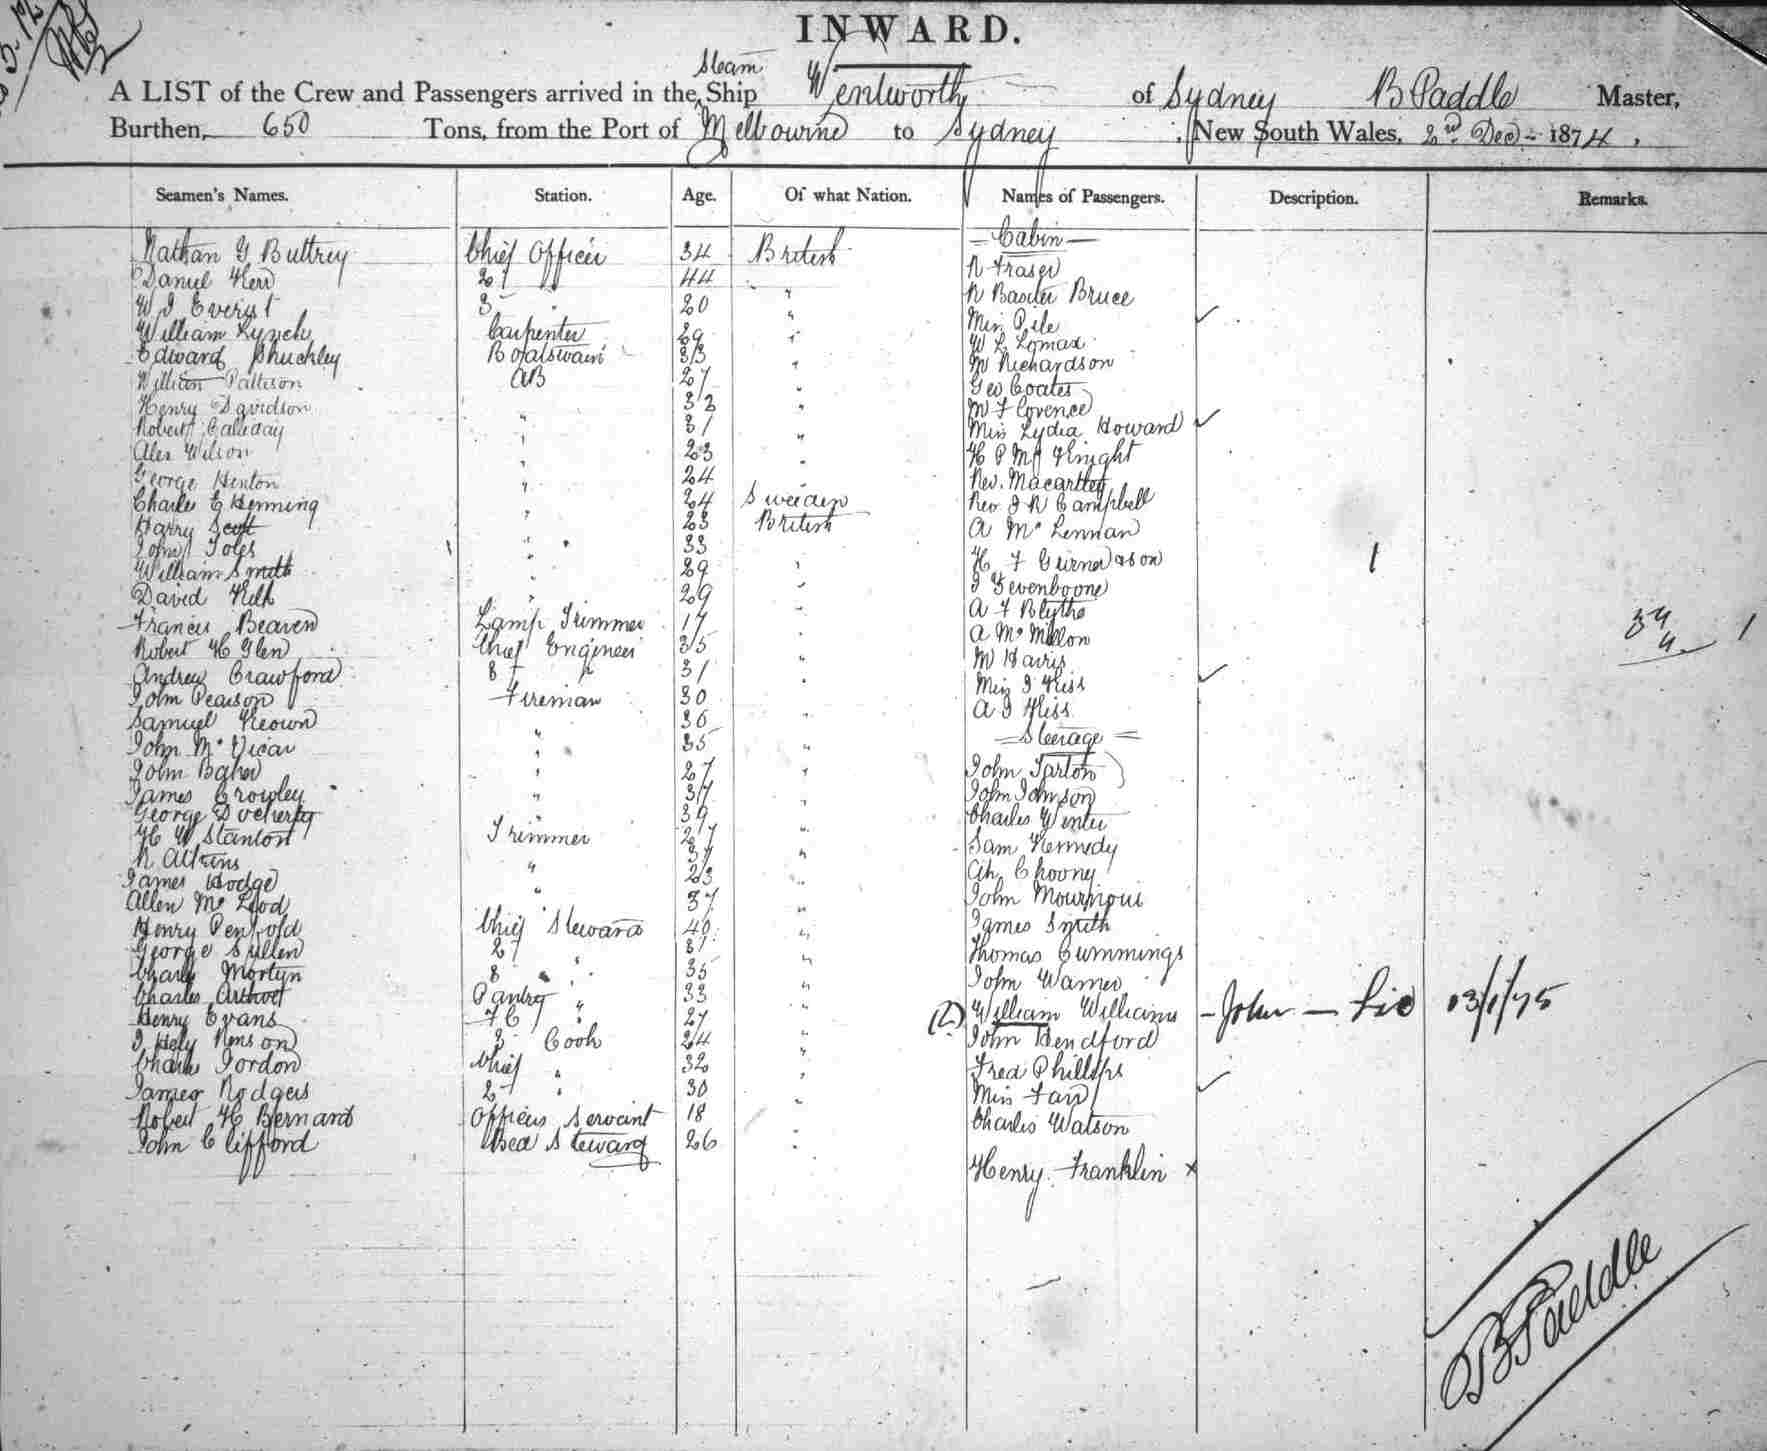 INWARD.
Steam
A LIST of the Crew and Passengers arrived in the Ship Wentworth of Sydney B Paddle Master,
Burthen, 650 Tons, from the Port of Melbourne to Sydney, New South Wales, 2nd Dec 1874.
Seamen's Names. Station. Age. Of what Nation. Names of Passengers. Description. Remarks.
Cabin
Nathan G Buttrey Chief Officer 34 British
Daniel Kerr 2 " 44 R Fraser
W J Everist 3 " 20 " R Baxter Bruce
William Lynch Carpenter 29 " Miss Pile ✓
Edward Shuckley Boatswain 33 " W L Lomax
William Pattison AB 27 " Mr Richardson
Henry Davidson " 32 " Geo Coates
Robert " 31 " M Florence
Alex Wilson " 23 " Miss Lydia Howard ✓
George Henton " 24 " H P McKnight
Charles E Henning " 24 Sweden Rev. Macartney
Harry Scott " 23 British Rev J R Campbell
John Toles " 33 A McLennan
William Smith " 29 " H F Gurner & son
David Kelk " 29 "
Francis Beaven Lamp Trimmer 17 " A F Blythe
Robert H Glen Chief Engineer 35 " A McMillon
Andrew Crawford 2 " 31 " M Harris
John Pearson Fireman 30 " Miss J Kiss ✓
Samuel Keown " 36 " A J Kiss
John McVicar " 35 " Steerage
John Baker " 27 " John Tarlton
James Crowley " 37 " John Johnson
George Docherty " 39 " Charles Winter
H W Stanton Trimmer 27 " Sam Kennedy
R Atkins " 37 " Ah Choong
James Hodge " 23 " John
Allen McLeod " 37 " James Smith
Henry Penfold Chief Steward 40 " Thomas Cummings
George Sullen 2 " 31 " John Warner
Charles Mortyn 3 " 35 " William Williams - John - Lic 13/1/75
Charles Arthur Pantry " 33 " John Bendford
Henry Evans F C " 27 " Fred Phillips
J Hely 3 Cook 24 " Miss Farr ✓
Charles Jordon Chief " 32 " Charles Watson
James Rodgers 2 " 30 " Henry Franklin x
Robert H Bernard Officers Servant 18 "
John Clifford Bed Steward 26 "
34
4
1
B Paddle